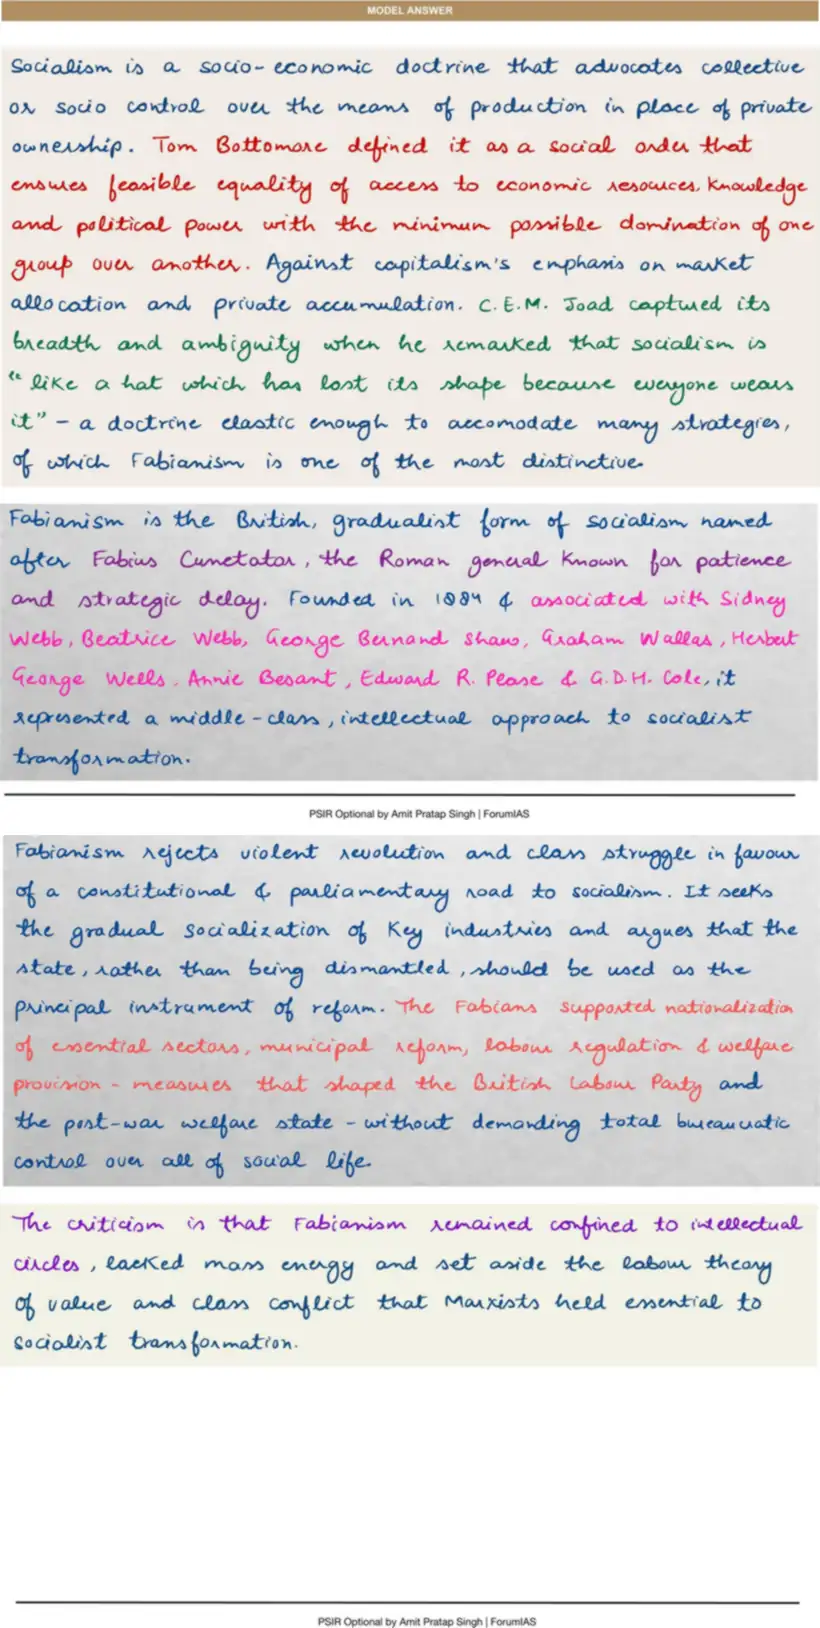 MODEL ANSWER
Socialism is a socio-economic doctrine that advocates collective
or socio control over the means of production in place of private
ownership. Tom Bottomore defined it as a social order that
ensures feasible equality of access to economic resources, knowledge
and political power with the minimum possible domination of one
group over another. Against capitalism's emphasis on market
allocation and private accumulation. C.E.M. Joad captured its
breadth and ambiguity when he remarked that socialism is
"like a hat which has lost its shape because everyone wears
it" - a doctrine elastic enough to accomodate many strategies,
of which Fabianism is one of the most distinctive.
Fabianism is the British, gradualist form of socialism named
after Fabius Cunctator, the Roman general known for patience
and strategic delay. Founded in 1884 & associated with Sidney
Webb, Beatrice Webb, George Bernand Shaw, Graham Wallas, Herbert
George Wells, Annie Besant, Edward R. Pease & G.D.H. Cole, it
represented a middle-class, intellectual approach to socialist
transformation.
PSIR Optional by Amit Pratap Singh | ForumIAS
Fabianism rejects violent revolution and class struggle in favour
of a constitutional & parliamentary road to socialism. It seeks
the gradual socialization of key industries and argues that the
state, rather than being dismantled, should be used as the
principal instrument of reform. The Fabians supported nationalization
of essential sectors, municipal reform, labour regulation & welfare
provision - measures that shaped the British Labour Party and
the post-war welfare state - without demanding total bureaucratic
control over all of social life.
The criticism is that Fabianism remained confined to intellectual
circles, lacked mass energy and set aside the labour theory
of value and class conflict that Marxists held essential to
socialist transformation.
PSIR Optional by Amit Pratap Singh | ForumIAS